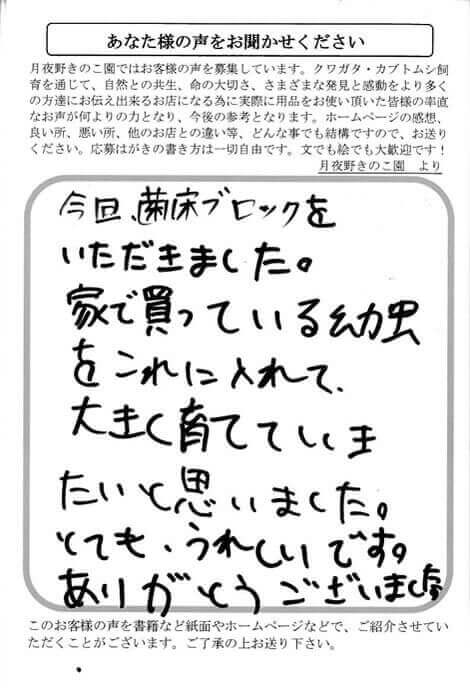 あなた様の声をお聞かせください
月夜野きのこ園ではお客様の声を募集しています。クワガタ・カブトムシ飼
育を通じて、自然との共生、命の大切さ、さまざまな発見と感動をより多く
の方達にお伝え出来るお店になる為に実際に用品をお使い頂いた皆様の率直
なお声が何よりの力となり、今後の参考となります。ホームページの感想、
良い所、悪い所、他のお店との違い等、どんな事でも結構ですので、お送り
ください。応募はがきの書き方は一切自由です。文でも絵でも大歓迎です！
月夜野きのこ園 より
今回、菌床ブロックを
いただきました。
家で買っている幼虫
をこれに入れて、
大きく育てていき
たいと思いました。
とても、うれしいです。
ありがとうございました
このお客様の声を書籍など紙面やホームページなどで、ご紹介させてい
ただくことがございます。ご了承の上お送り下さい。